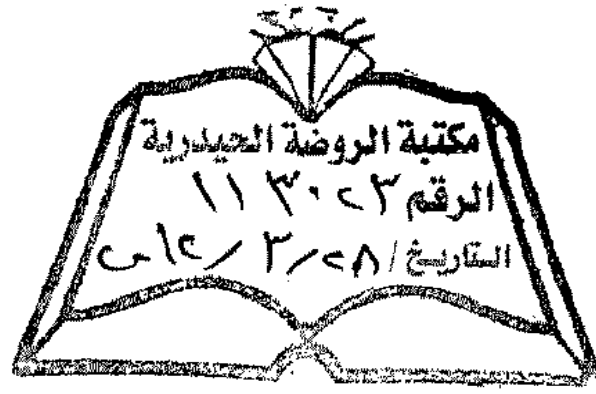 مكتبة الروضة الحيدرية
الرقم ١١٣٠٢٣
التاريخ / ٢٨ / ٣ / ١٢